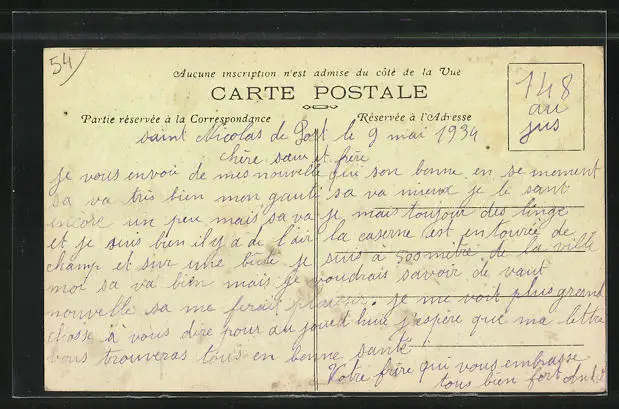 54
Aucune inscription n'est admise du côté de la Vue
CARTE POSTALE
Partie réservée à la Correspondance
Réservée à l'Adresse
148
au
jus
saint Nicolas de Port le 9 mai 1934
chère sœur et frère
je vous envoie de mes nouvelle qui son bonne en se moment
sa va très bien mon gauti sa va mieux je le sant
encore un peu mais sa va je mais toujour des linge
et je suis bien il y a de l'air la caserne est entourée de
champ et sur une bute je suis à 500 mitre de la ville
moi sa va bien mais je voudrais savoir de vaut
nouvelle sa me ferait plaisir. je me voit plus grand
chosse à vous dire pour au jourd huit j'espère que ma lettre
vous trouveras tous en bonne santé
Votre frère qui vous embrasse
tous bien fort